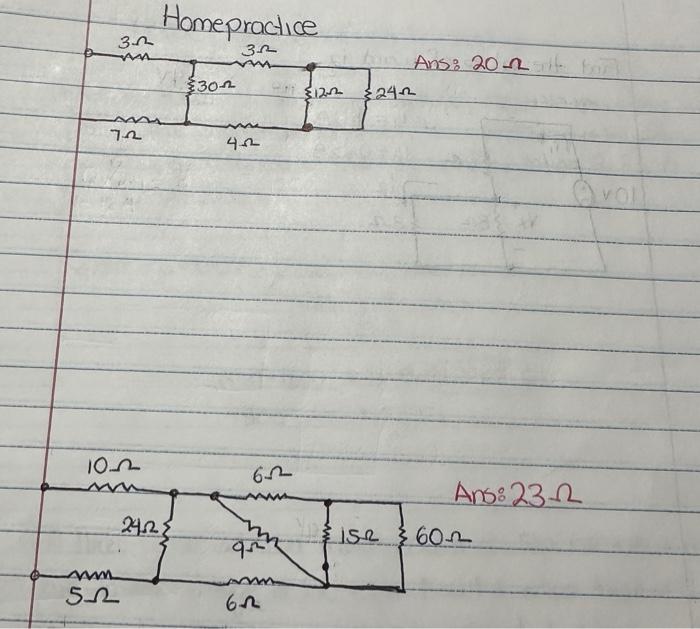 Homepractice
3Ω 3Ω Ans: 20 Ω
30Ω 12Ω 24Ω
7Ω 4Ω
10Ω 6Ω Ans: 23 Ω
24Ω 9Ω 15Ω 60Ω
5Ω 6Ω
10V